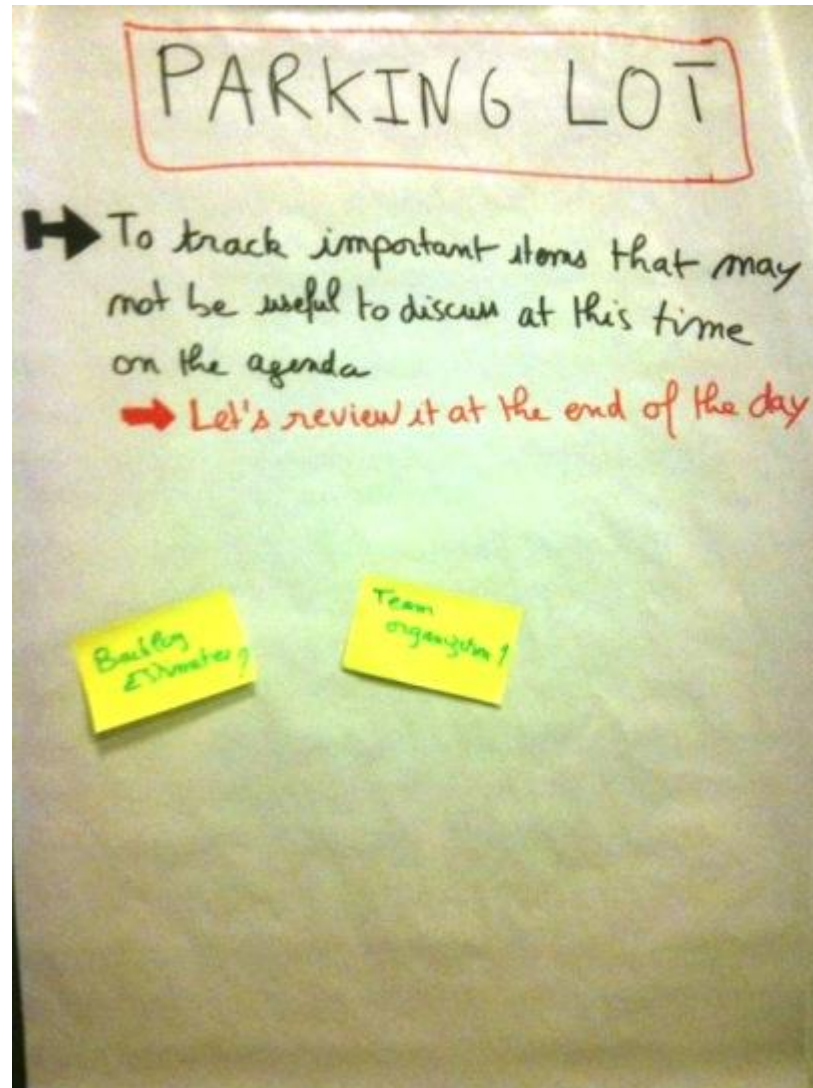 PARKING LOT
To track important items that may
not be useful to discuss at this time
on the agenda
Let's review it at the end of the day
Backlog
Estimation?
Team
organization?